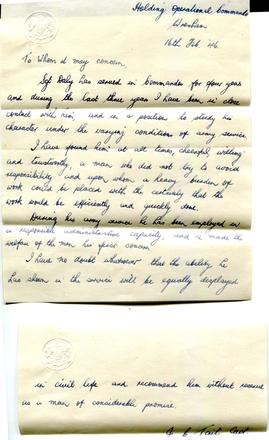 Holding Operational Commando
Wrexham
16th Feb. 46
To Whom it may concern,
Sgt Daly has served in Commandos for four years
and during the last three years I have been in close
contact with him, and in a position to study his
character under the varying conditions of army service.
I have found him at all times, cheerful, willing
and trustworthy, a man who did not try to avoid
responsibility and upon whom a heavy burden of
work could be placed with the certainty that the
work would be efficiently and quickly done.
During his army service he has been employed in
a responsible administrative capacity, and has made the
welfare of the men his first concern.
I have no doubt whatsoever that the ability he
has shown in the service will be equally displayed
in civil life and recommend him without reserve
as a man of considerable promise.